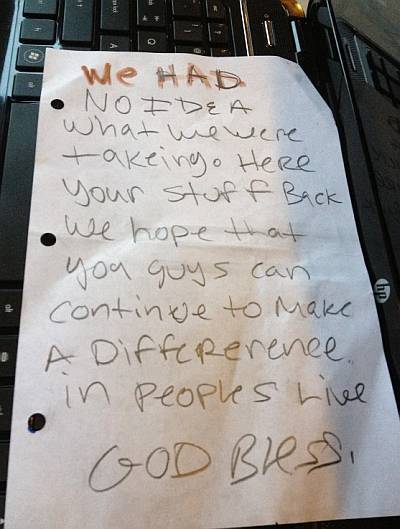 We HAD
NO IDEA
what we were
takeing. Here
your stuff Back
We hope that
you guys can
continue to Make
A Differerence.
in peoples Live
GOD Bless.
hp